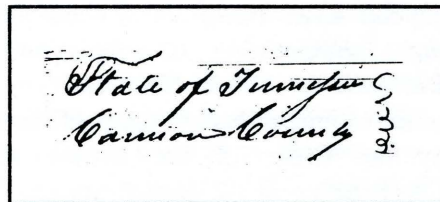 State of Tennessee
Cannon County